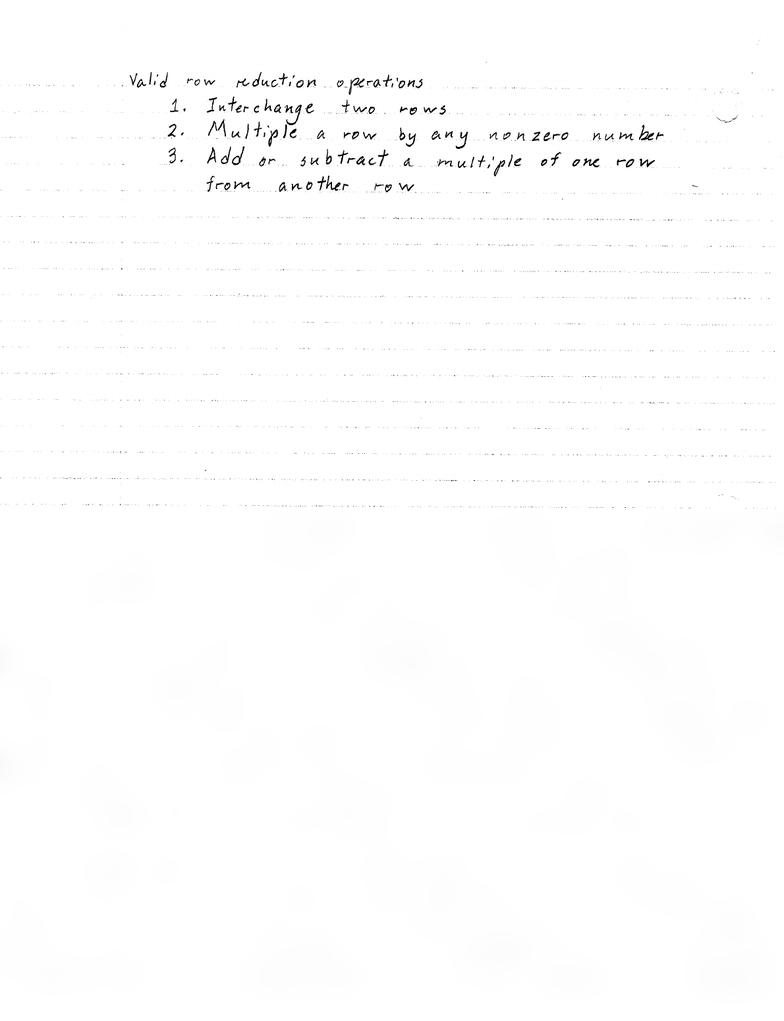 Valid row reduction operations
1. Interchange two rows
2. Multiple a row by any nonzero number
3. Add or subtract a multiple of one row
from another row